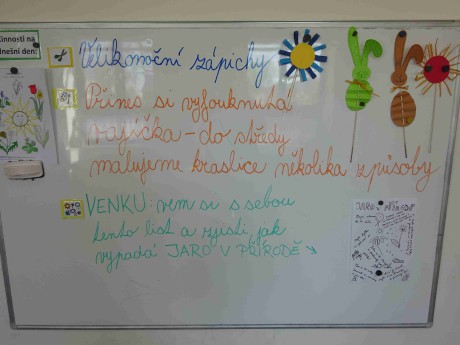 činnosti na
dnešní den:
Velikonoční zápichy
Přines si vyfouknutá
vajíčka - do středy
malujeme kraslice několika způsoby
VENKU: vem si s sebou
tento list a zjisti, jak
vypadá JARO V PŘÍRODĚ
JARO V PŘÍRODĚ